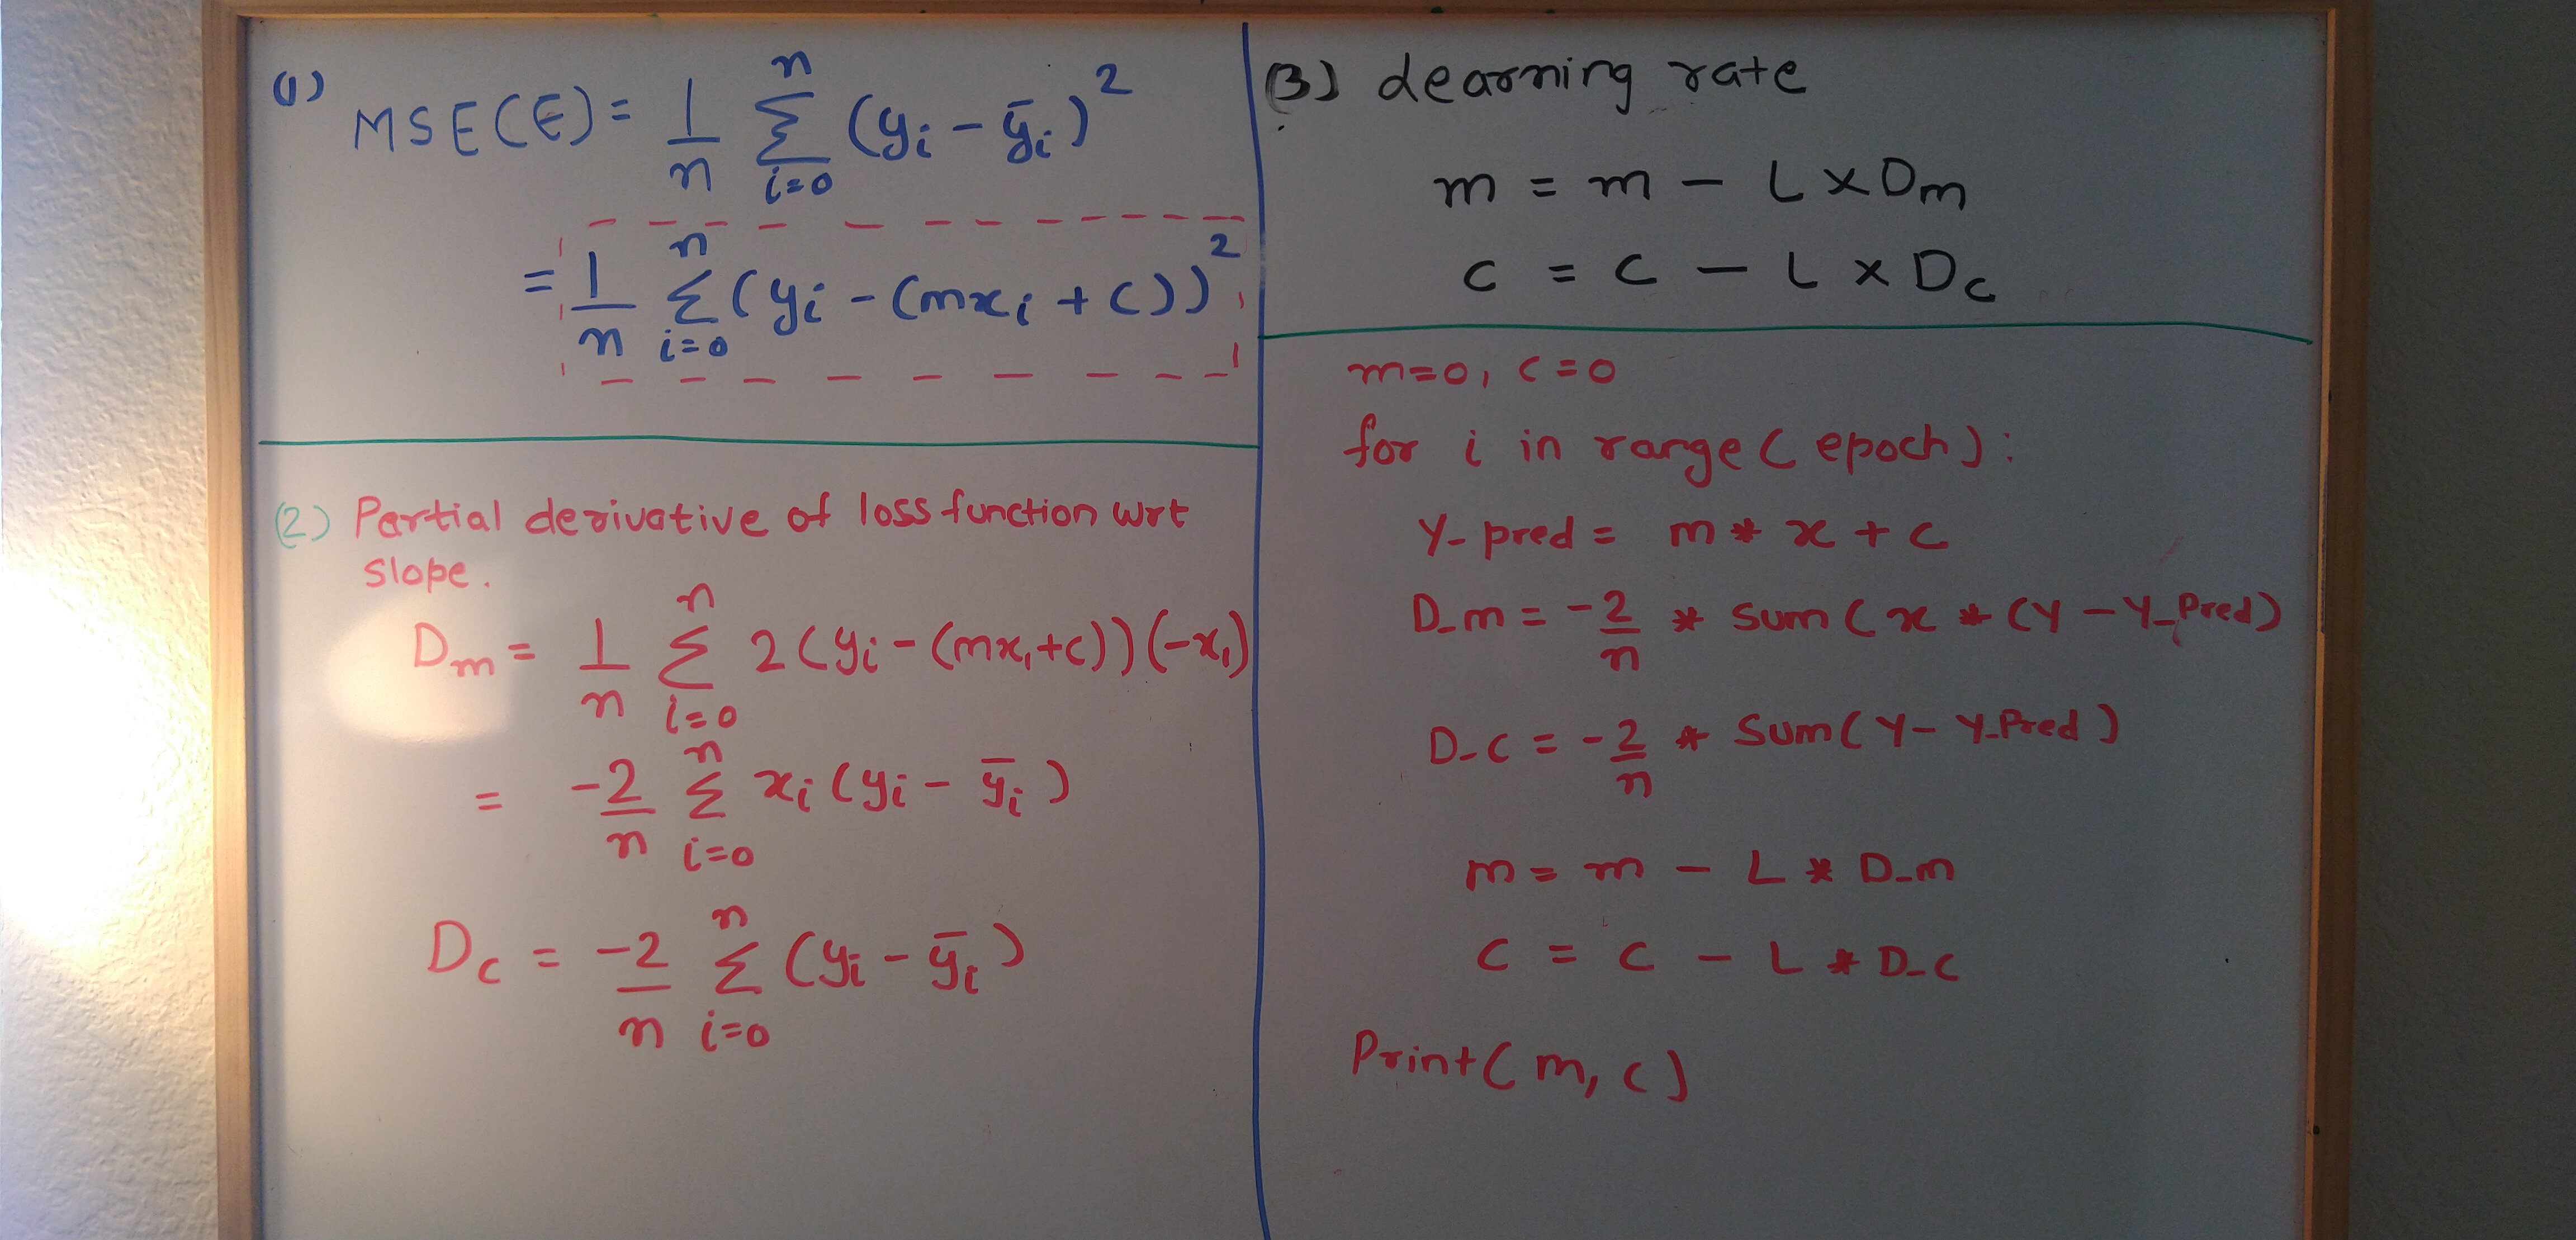 (1)
MSE(E) = 1/n n Σ i=0 (yi - ȳi)²
= 1/n n Σ i=0 (yi - (mxi + c))²
(2) Partial derivative of loss function wrt
slope.
Dm = 1/n n Σ i=0 2(yi - (mxi+c))(-xi)
= -2/n n Σ i=0 xi(yi - ȳi)
Dc = -2/n n Σ i=0 (yi - ȳi)
(3) Learning rate
m = m - L x Dm
c = c - L x Dc
m=0, c=0
for i in range(epoch):
Y_pred = m * x + c
D_m = -2/n * sum(x * (Y - Y_Pred)
D_c = -2/n * Sum(Y - Y_Pred)
m = m - L * D_m
c = c - L * D_c
Print(m, c)